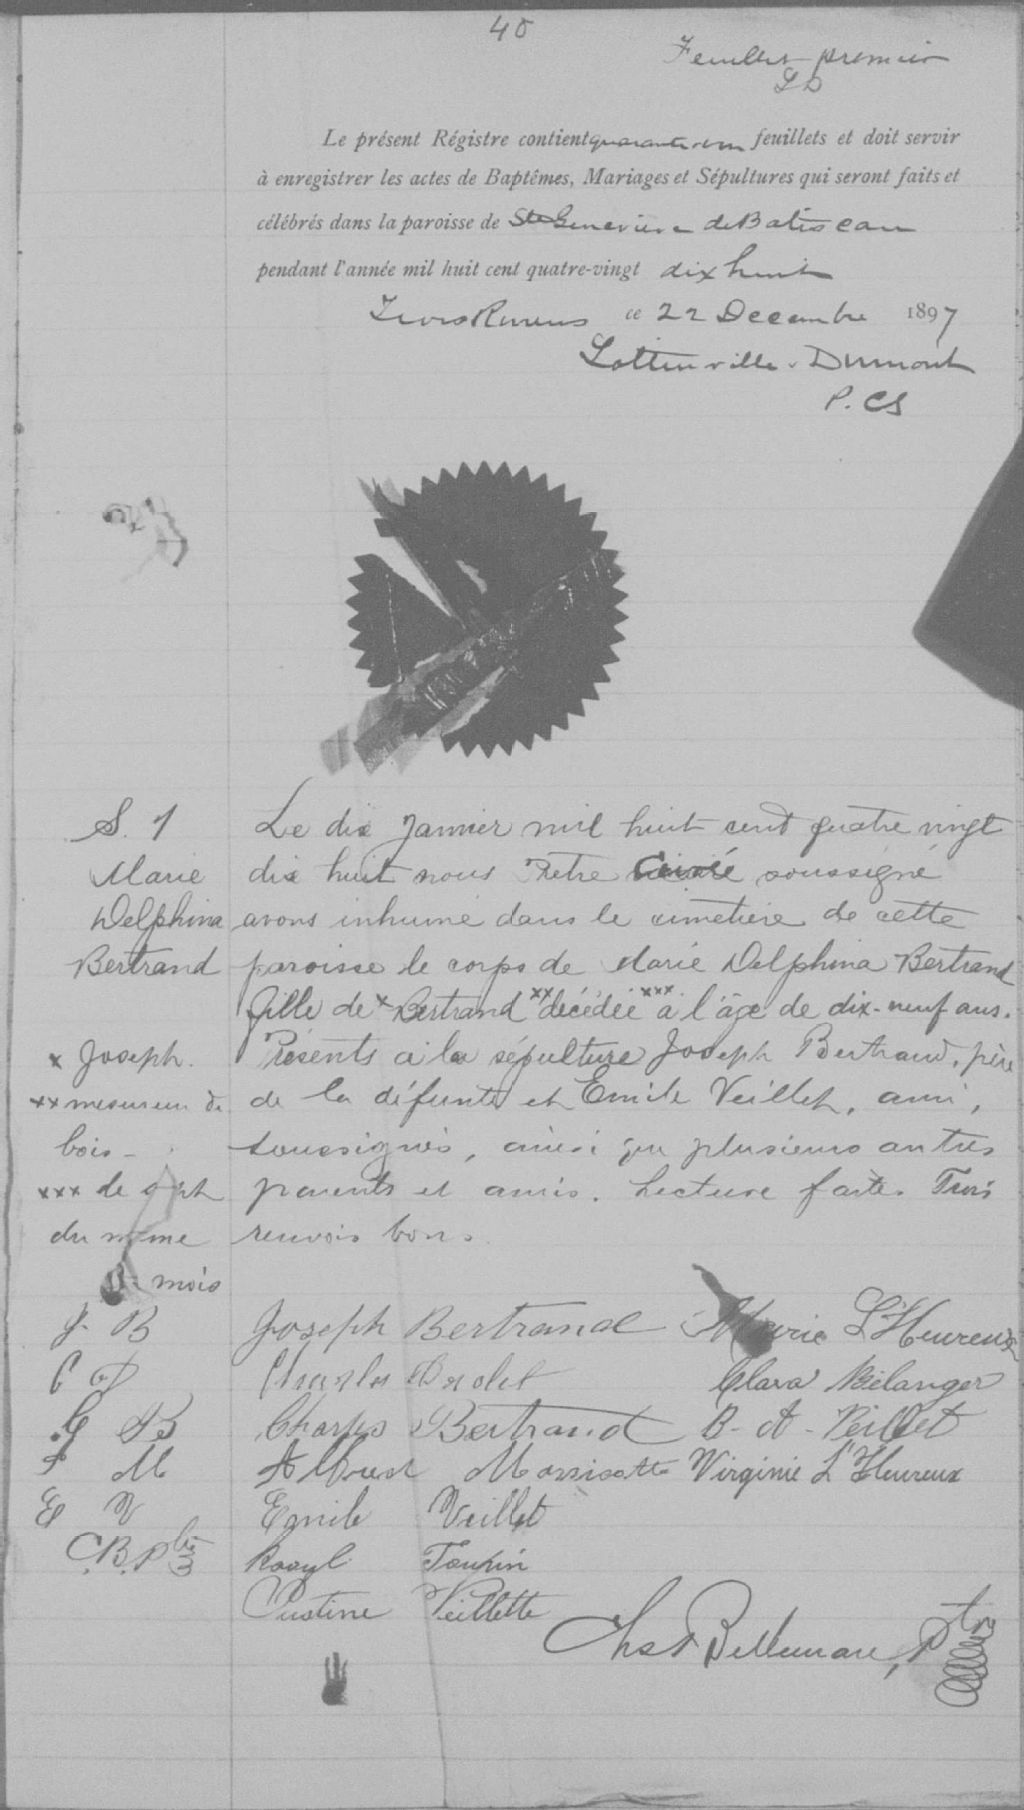 40
Feuillet premier
LD
Le présent Régistre contient quarante-un feuillets et doit servir
à enregistrer les actes de Baptêmes, Mariages et Sépultures qui seront faits et
célébrés dans la paroisse de Ste Geneviève de Batiscan
pendant l'année mil huit cent quatre-vingt dix huit
Trois Rivières ce 22 Decembre 1897
Lottinville. Dumont
P. CS
S. 1
Marie
Delphina
Bertrand
Le dix Janvier mil huit cent quatre vingt
dix huit nous Prêtre Curé soussigné
avons inhumé dans le cimetière de cette
paroisse le corps de Marie Delphina Bertrand
fille de x Bertrand xx décédée xxx à l'âge de dix-neuf ans.
Présents à la sépulture Joseph Bertrand, père
de la défunte et Emile Veillet, ami,
soussignés, ainsi que plusieurs autres
parents et amis. Lecture faite. Trois
renvois bons.
x Joseph.
xx mesureur de
bois -
xxx le sept
du même
mois
J. B
Joseph Bertrand Marie L'Heureux
Charles Clara Bélanger
C B
Charles Bertrand B. A. Veillet
M
Morrissette Virginie L'Heureux
E V
Emile Veillet
C. B. Ptre
Veillette
Chs Bellemare, Ptre